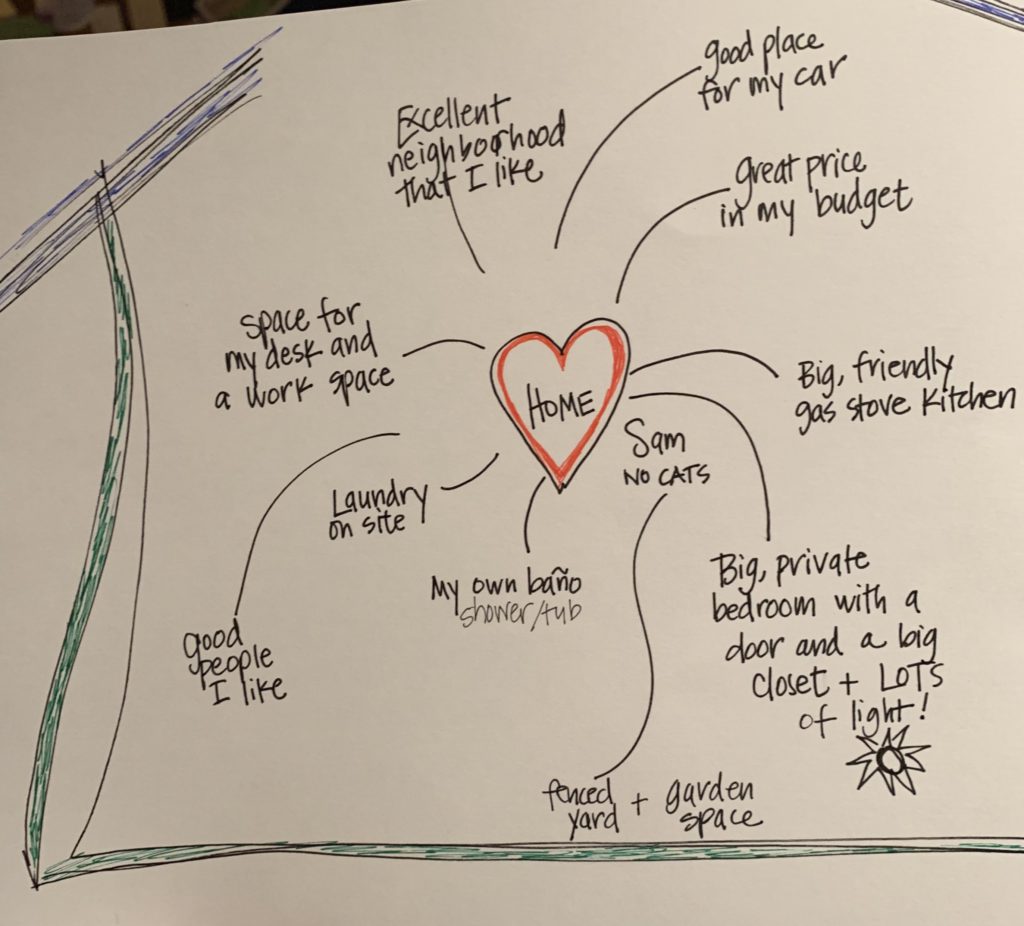 good place
for my car
Excellent
neighborhood
that I like
great price
in my budget
space for
my desk and
a work space
HOME
Big, friendly
gas stove kitchen
Sam
NO CATS
Laundry
on site
My own baño
shower/tub
Big, private
bedroom with a
door and a big
closet + LOTS
of light!
good
people
I like
fenced
yard + garden
space